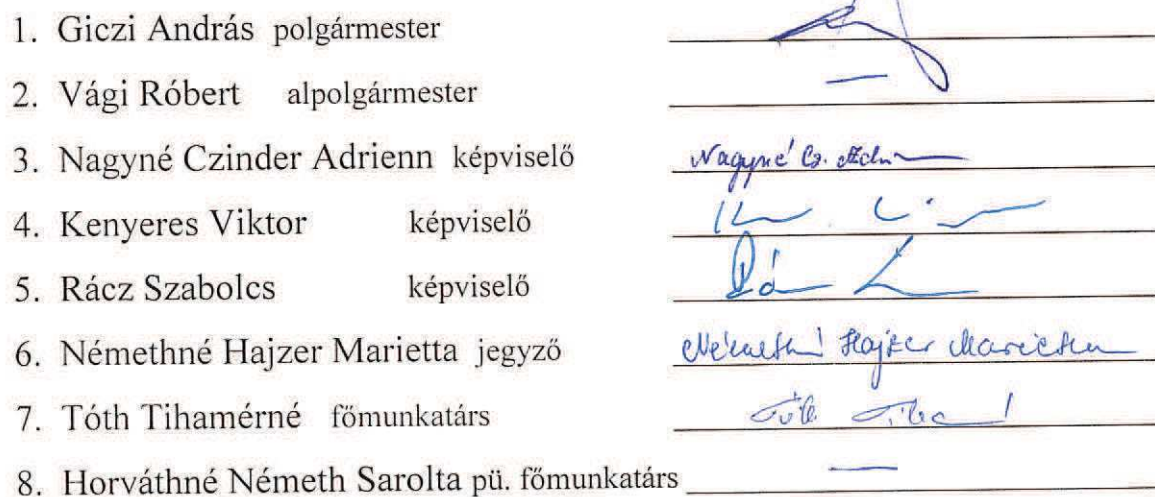 1. Giczi András polgármester
2. Vági Róbert alpolgármester —
3. Nagyné Czinder Adrienn képviselő Nagyné Cz.
4. Kenyeres Viktor képviselő
5. Rácz Szabolcs képviselő
6. Némethné Hajzer Marietta jegyző Némethné Hajzer Marietta
7. Tóth Tihamérné főmunkatárs Tóth
8. Horváthné Németh Sarolta pü. főmunkatárs —